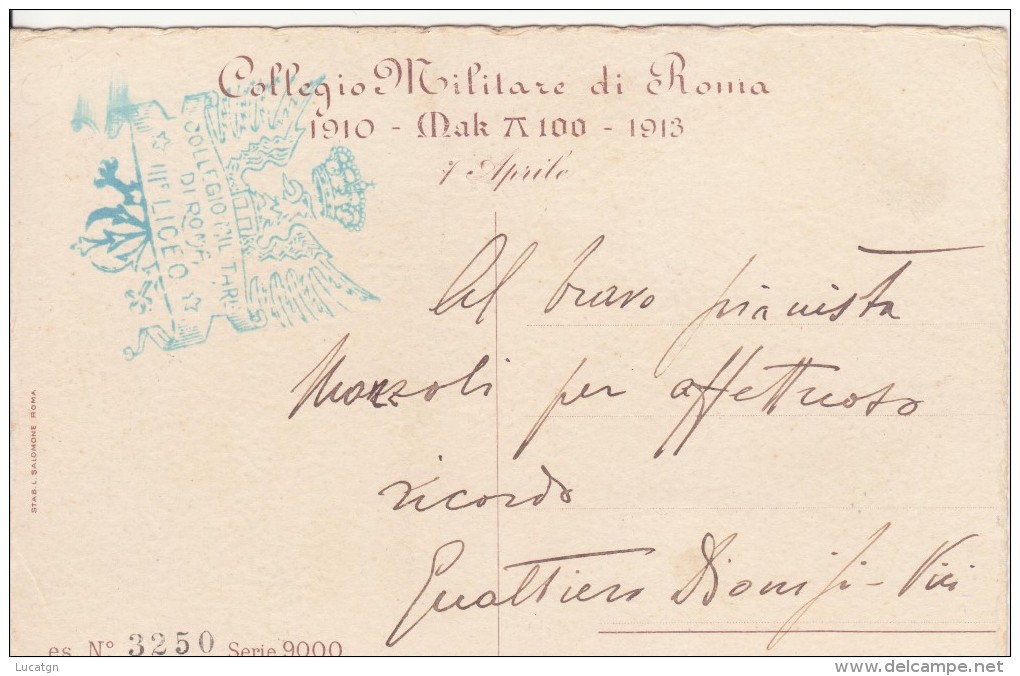 Collegio Militare di Roma
1910 - Mak π 100 - 1913
7 Aprile
COLLEGIO MIL TARE
DI ROMA
☆ IIIº LICEO ☆
Al bravo pianista
Mazzoli per affettuoso
ricordo
Gualtiero Dionisi-
STAB. L. SALOMONE ROMA
es. Nº 3250 Serie 9000
Lucatgn
www.delcampe.net